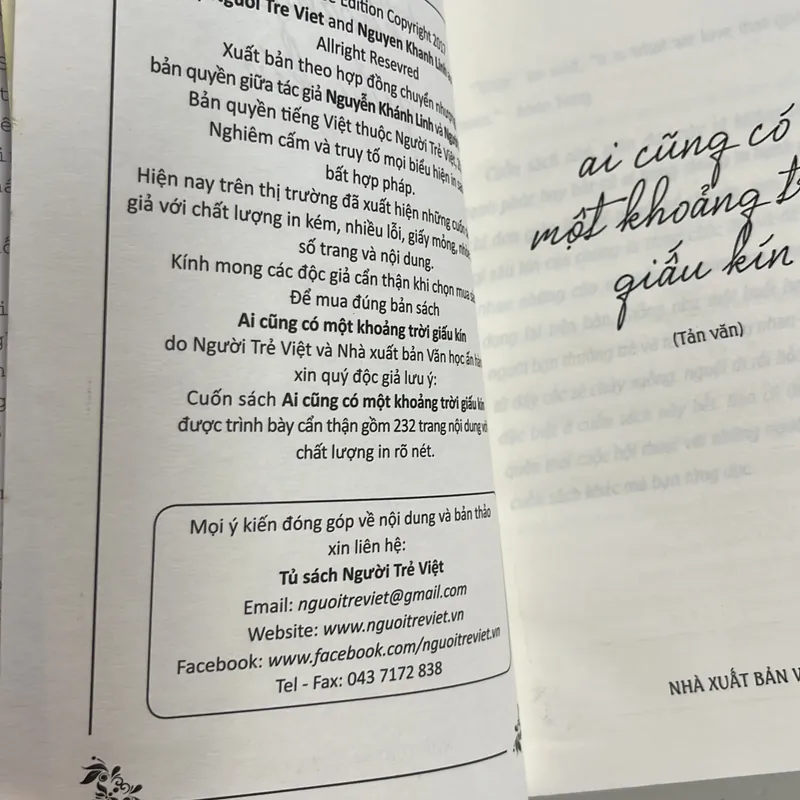 Edition Copyright 201
Người Tre Viet and Nguyen Khanh Linh
Allright Resevred
Xuất bản theo hợp đồng chuyển nhượng
bản quyền giữa tác giả Nguyễn Khánh Linh và Người
Bản quyền tiếng Việt thuộc Người Trẻ Việt,
Nghiêm cấm và truy tố mọi biểu hiện in sao
bất hợp pháp.
Hiện nay trên thị trường đã xuất hiện những cuốn
giả với chất lượng in kém, nhiều lỗi, giấy mỏng,
số trang và nội dung.
Kính mong các độc giả cẩn thận khi chọn mua
Để mua đúng bản sách
Ai cũng có một khoảng trời giấu kín
do Người Trẻ Việt và Nhà xuất bản Văn học ấn
xin quý độc giả lưu ý:
Cuốn sách Ai cũng có một khoảng trời giấu kín
được trình bày cẩn thận gồm 232 trang nội dung với
chất lượng in rõ nét.
Mọi ý kiến đóng góp về nội dung và bản thảo
xin liên hệ:
Tủ sách Người Trẻ Việt
Email: nguoitreviet@gmail.com
Website: www.nguoitreviet.vn
Facebook: www.facebook.com/nguoitreviet.vn
Tel - Fax: 043 7172 838
ai cũng có
một khoảng
giấu kín
(Tản văn)
NHÀ XUẤT BẢN V